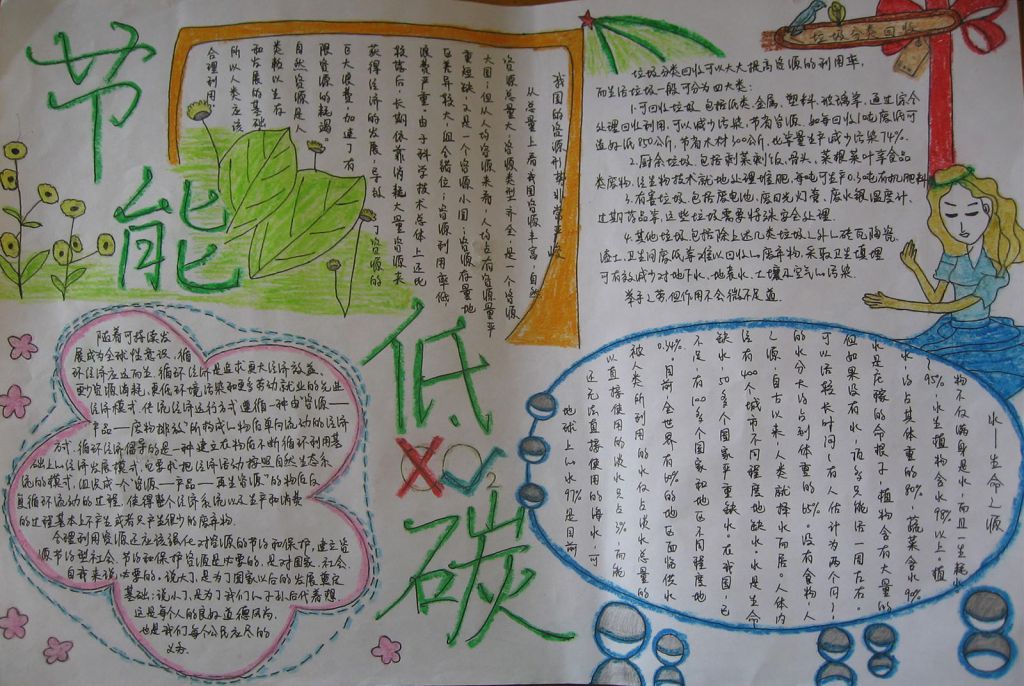 节能
低碳
我国的资源形势非常严峻
从总量上看我国资源丰富,自然
资源总量大、资源类型齐全,是一个资源
大国;但从人均资源来看,人均占有资源量严
重短缺,又是一个资源小国;资源存量地
区差异较大,组合错位;资源利用率低
浪费严重。由于科学技术总体上还比
较落后,长期依靠消耗大量资源来
获得经济的发展,导致了资源的
巨大浪费,加速了有
限资源的耗竭。
自然资源是人
类赖以生存
和发展的基础
所以人类应该
合理利用
垃圾分类回收
垃圾分类回收可以大大提高资源的利用率,
而生活垃圾一般可分为四大类:
1.可回收垃圾 包括纸类、金属、塑料、玻璃等,通过综合
处理回收利用,可以减少污染,节省资源。如每回收1吨废纸可
造好纸850公斤,节省木材300公斤,比等量生产减少污染74%。
2.厨余垃圾 包括剩菜剩饭、骨头、菜根菜叶等食品
类废物,经生物技术就地处理堆肥,每吨可生产0.3吨有机肥料
3.有害垃圾 包括废电池、废日光灯管、废水银温度计、
过期药品等,这些垃圾需要特殊安全处理。
4.其他垃圾 包括除上述几类垃圾之外的砖瓦陶瓷、
渣土、卫生间废纸等难以回收的废弃物,采取卫生填埋
可有效减少对地下水、地表水、土壤及空气的污染
举手之劳,但作用不会微不足道
随着可持续发
展成为全球性意识,循
环经济应运而生。循环经济是追求更大经济效益、
更少资源消耗、更低环境污染和更多劳动就业的先进
经济模式。传统经济运行方式遵循一种由“资源—
产品—废物排放”所构成的物质单向流动的经济
方式,循环经济倡导的是一种建立在物质不断循环利用基
础上的经济发展模式,它要求把经济活动按照自然生态系
统的模式,组织成一个“资源—产品—再生资源”的物质反
复循环流动的过程,使得整个经济系统以及生产和消费
的过程基本上不产生或者只产生很少的废弃物。
合理利用资源还应该强化对资源的节约和保护,建立资
源节约型社会,节约和保护资源是必要的,是对国家、社会、
自我来说必要的,说大了,是为了国家以后的发展奠定
基础;说小了,是为了我们的子孙后代着想。
这是每个人的良好道德风尚,
也是我们每个公民应尽的
义务。
水—生命之源
物不仅满身是水,而且一生耗水
95%,水生植物含水98%以上。植
水,约占其体重的80%,蔬菜含水90%
水是庄稼的命根子,植物含有大量的
但如果没有水,顶多只能活一周左右。
可以活较长时间(有人估计为两个月)
的水分大约占到体重的65%。没有食物,人
之源,自古以来,人类就择水而居。人体内
有400个城市不同程度地缺水。水是生命
缺水,50多个国家严重缺水。在我国,已
不足,有100多个国家和地区不同程度地
0.34%。目前,全世界有60%的地区面临供水
被人类所利用的水仅占淡水总量的
以直接使用的淡水只占3%,而能
还无法直接使用的海水,可
地球上的水97%是目前